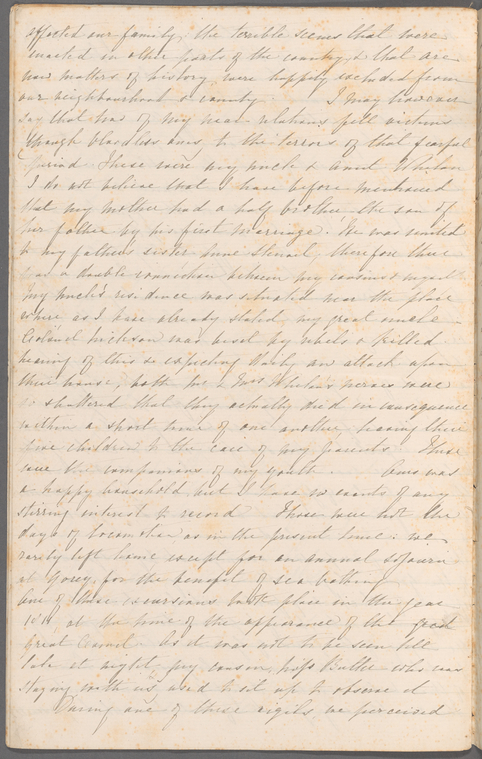 affected our family, the terrible scenes that were
enacted in other parts of the country & that are
now matters of history were happily excluded from
our neighbourhood & county I may however
say that two of my near relations fell victims
though bloodless ones, to the terrors of that fearful
period These were my uncle & aunt Whelan
I do not believe that I have before mentioned
that my mother had a half brother, the son of
her father by his first marriage. He was united
to my father's sister Anne therefore there
was a double connexion between my cousins & myself
My uncle's residence was situated near the place
where as I have already stated, my great uncle
Colonel was beset by rebels & killed
hearing of this & expecting daily an attack upon
their house, both his & Mrs Whelan's nerves were
so shattered that they actually died in consequence
within a short time of one another, leaving their
five children to the care of my parents. These
were the companions of my youth. Ours was
a happy household but I have no events of any
stirring interest to record Those were not the
days of locomotion as in the present time. we
rarely left home except for an annual sojourn
at Gorey, for the benefit of sea bathing
One of these excursions took place in the year
1811 at the time of the appearance of the great
Great Comet. As it was not to be seen till
late at night, my cousin, Miss Butler who was
staying with us, used to sit up to observe it
During one of these vigils we perceived